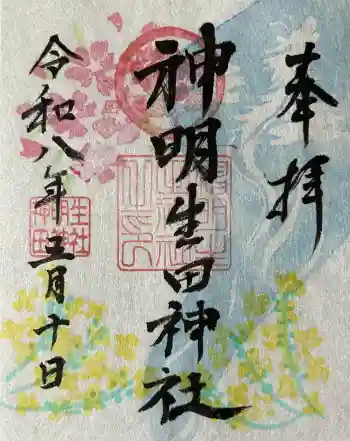 奉拝
神明生田神社
令和八年三月十日